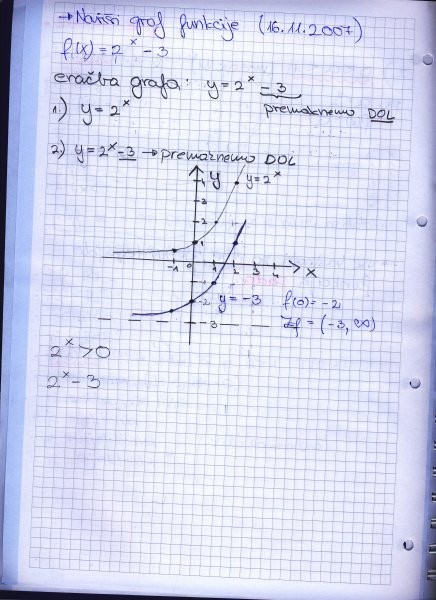 → Nariši graf funkcije (16.11.2007)
f(x) = 2^x - 3
enačba grafa: y = 2^x - 3
premaknemo DOL
1.) y = 2^x
2) y = 2^x - 3 → premaknemo DOL
y
y = 2^x
4
3
2
1
-1 0 1 2 3 4 x
-1
-2 y = -3 f(0) = -2
-3 Zf = (-3, ∞)
2^x > 0
2^x - 3